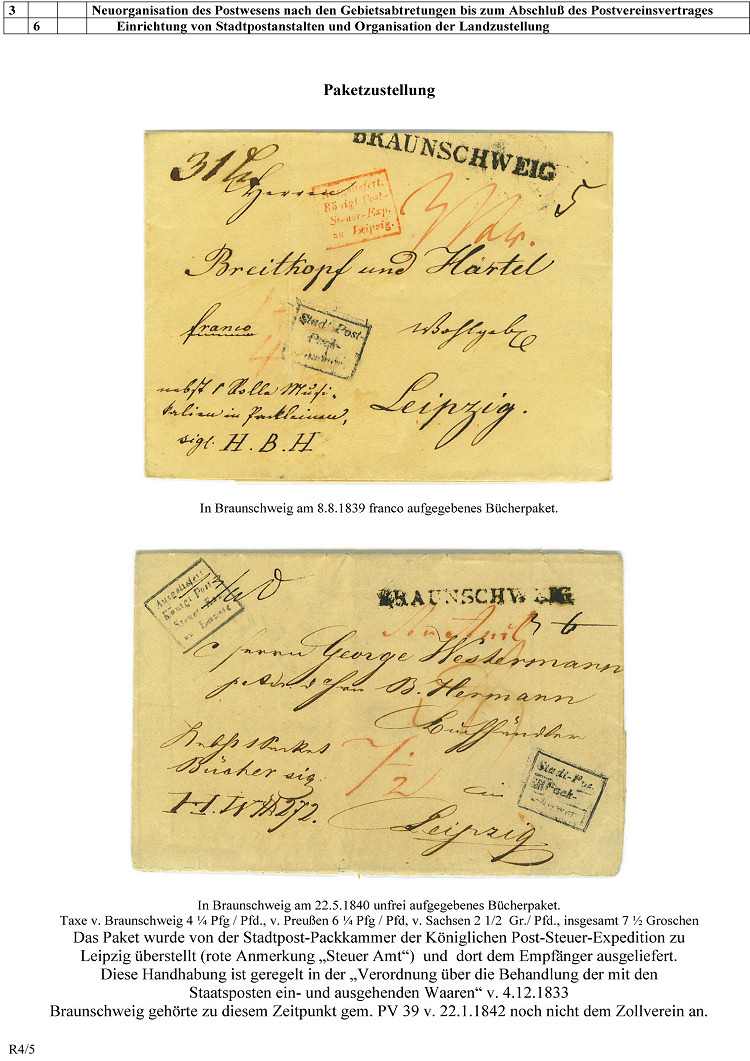 3 Neuorganisation des Postwesens nach den Gebietsabtretungen bis zum Abschluß des Postvereinsvertrages
6 Einrichtung von Stadtpostanstalten und Organisation der Landzustellung
Paketzustellung
BRAUNSCHWEIG
Herren
5
Ausgeliefert.
Königl Post-
Steuer-Exp.
zu Leipzig.
Breitkopf und Härtel
franco
Wohlgeb
Stadt-Post-
Pack-
nebst 1 Rolle Musi-
kalien in Packleinen,
sigl. H. B. H
Leipzig.
In Braunschweig am 8.8.1839 franco aufgegebenes Bücherpaket.
Ausgeliefert
Königl Post-
Steuer-
zu Leipzig
BRAUNSCHWEIG
Herrn George Westermann
B. Hermann
Buchhändler
Nebst 1 Packet
Bücher sig.
272.
Stadt-Post
Pack-
in
Leipzig
In Braunschweig am 22.5.1840 unfrei aufgegebenes Bücherpaket.
Taxe v. Braunschweig 4 ¼ Pfg / Pfd., v. Preußen 6 ¼ Pfg / Pfd, v. Sachsen 2 1/2  Gr./ Pfd., insgesamt 7 ½ Groschen
Das Paket wurde von der Stadtpost-Packkammer der Königlichen Post-Steuer-Expedition zu
Leipzig überstellt (rote Anmerkung „Steuer Amt“)  und  dort dem Empfänger ausgeliefert.
Diese Handhabung ist geregelt in der „Verordnung über die Behandlung der mit den
Staatsposten ein- und ausgehenden Waaren“ v. 4.12.1833
Braunschweig gehörte zu diesem Zeitpunkt gem. PV 39 v. 22.1.1842 noch nicht dem Zollverein an.
R4/5